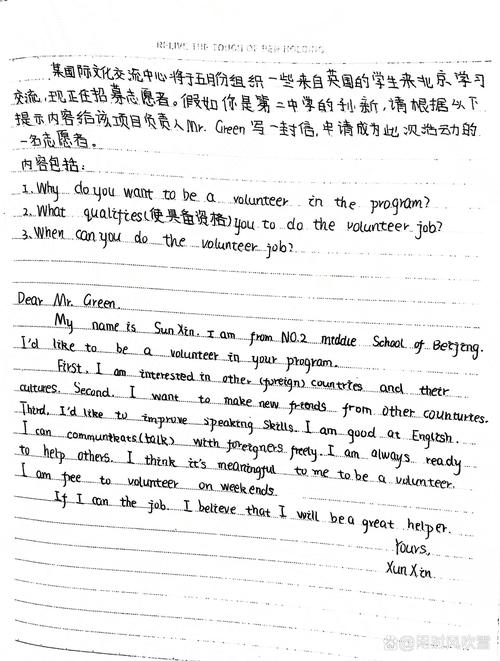 RELIVE THE TOUCH OF PEN HOLDING
某国际文化交流中心将于五月份组织一些来自英国的学生来北京学习
交流,现正在招募志愿者。假如你是第二中学的孙新,请根据以下
提示内容给该项目负责人Mr. Green 写一封信,申请成为此次活动的
一名志愿者。
内容包括:
1. Why do you want to be a volunteer in the program?
2. What qualifies(使具备资格)you to do the volunteer job?
3. When can you do the volunteer job?
Dear Mr. Green.
My name is Sun Xin. I am from NO.2 middle School of Beijing.
I'd like to be a volunteer in your program.
First, I am interested in other (foreign) countries and their
cultures. Second. I want to make new friends from other counturies.
Third, I'd like to improve speaking skills. I am good at English.
I can communicats(talk) with foreigners freely. I am always ready
to help others. I think it's meaningful to me to be a volunteer.
I am free to volunteer on weekends.
If I can the job. I believe that I will be a great helper.
Yours,
Xun Xin